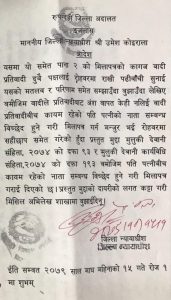 रुपन्देही जिल्ला अदालत
माननीय जिल्ला न्यायाधीश श्री उमेश कोइराला
आदेश
यसमा यो समेत पाना २ को कागज वादी
प्रतिवादी दुवै पक्षलाई रोहवरमा राखी पढीबाँची सुनाई
यसको मतलब र परिणाम समेत सम्झाउँदा बुझाउँदा लेखिए
बमोजिम वादीले प्रतिवादीबाट अंश वापत केही नलिई वादी
प्रतिवादीबीच कायम रहेको पति पत्नीको नाता सम्बन्ध
विच्छेद हुने गरी मिलापत्र गर्न मन्जुर भई रोहवरमा
सहीछाप समेत गरेको हुँदा प्रस्तुत मुद्दा मुलुकी देवानी
संहिता, २०७४ को दफा ९३ र मुलुकी देवानी कार्यविधि
संहिता,२०७४ को दफा १९३ बमोजिम पति पत्नीबीच
कायम रहेको नाता सम्बन्ध विच्छेद हुने गरी मिलापत्र
गराई दिएको छ। प्रस्तुत मुद्दाको दायरीको लगत कट्टा गरी
मिसिल अभिलेख शाखामा बुझाइदिनू।
जिल्ला न्यायाधीश
जिल्ला न्यायाधीश
ईति सम्वत २०७९ साल माघ महिनाको १५ गते रोज १
मा शुभम्